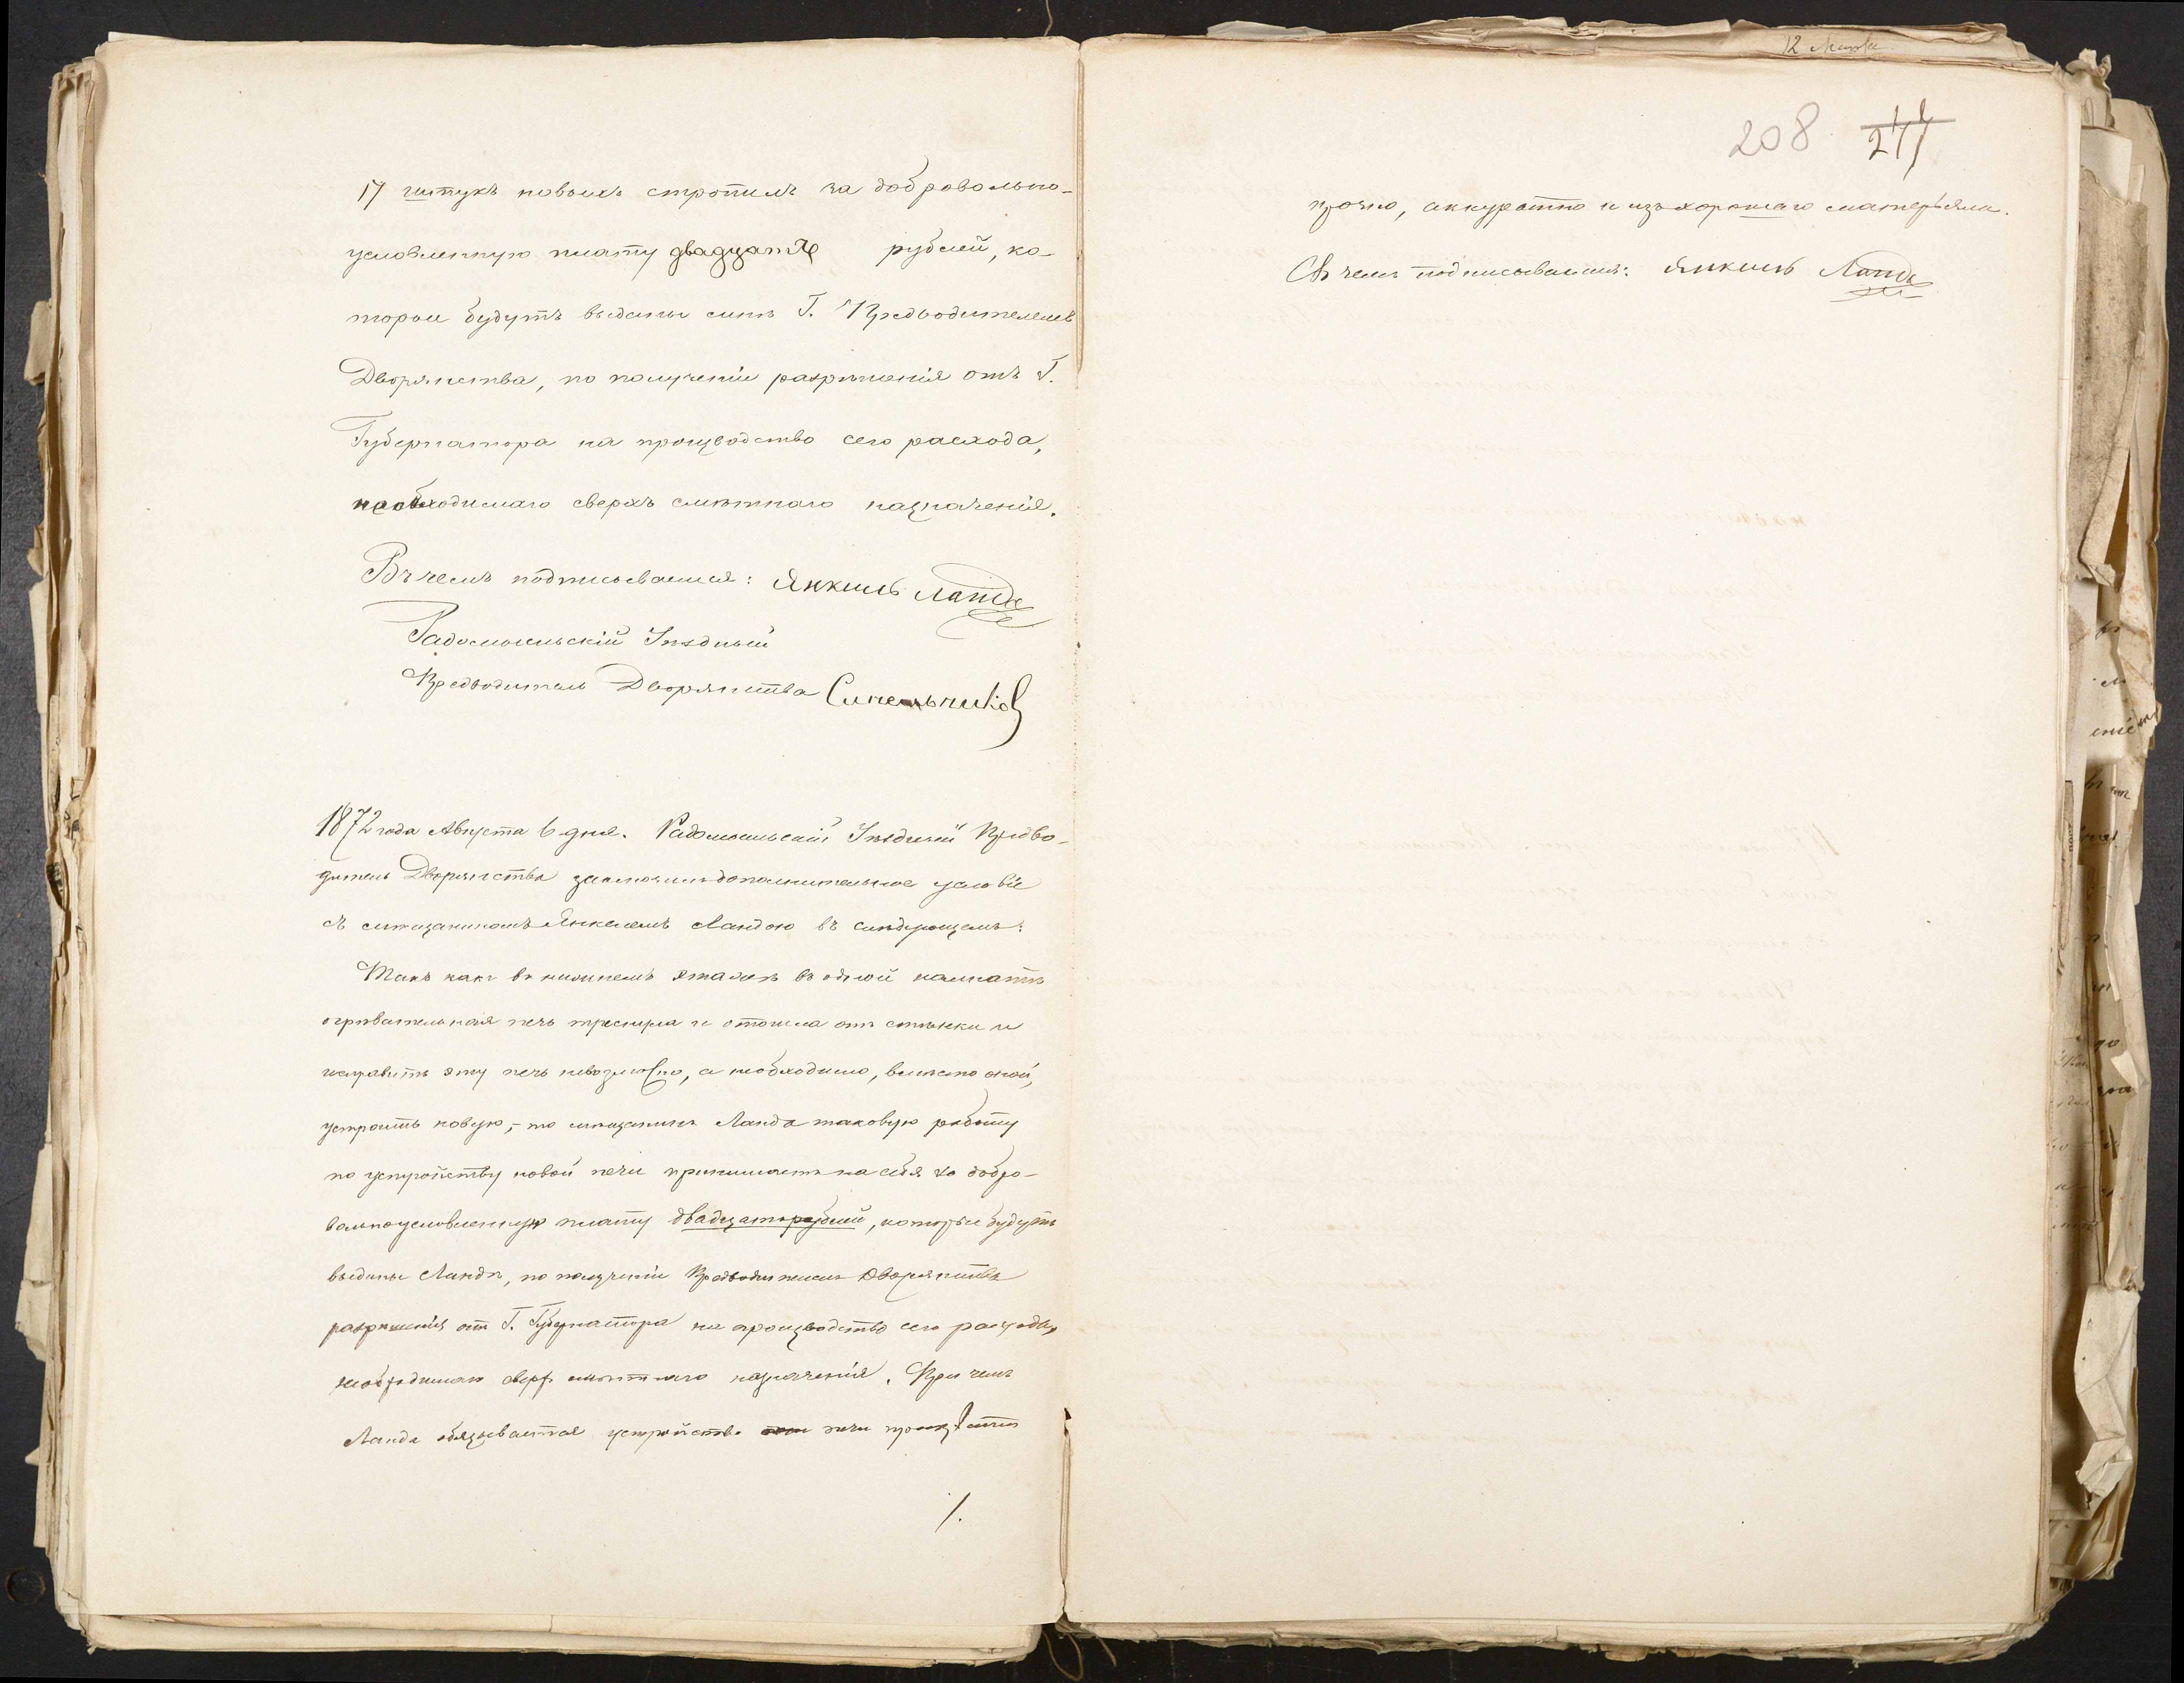 17 штукъ новыхъ стропилъ за добровольно-
условленную плату двадцать рублей, ко-
торые будутъ выданы мнѣ Г. Предводителемъ
Дворянства, по полученіи разрѣшенія отъ Г.
Губернатора на производство сего расхода,
необходимаго сверхъ смѣтнаго назначенія.
Въ чемъ подписываемся: Янкель Ланда
Радомысльскій Уѣздный
Предводитель Дворянства Синельников
1872 года Августа 6 дня. Радомысльскій Уѣздный Предво-
дитель Дворянства заключилъ дополнительное условіе
съ мѣщаниномъ Янкелемъ Ландою въ слѣдующемъ:
Такъ какъ въ нижнемъ этажѣ въ одной комнатѣ
огрѣвательная печь треснула и отошла отъ стѣнки и
исправить эту печь невозможно, а необходимо, вмѣсто оной,
устроить новую, - то мѣщанинъ Ланда таковую работу
по устройству новой печи принимаетъ на себя за добро-
вольноусловленную плату двадцать рублей, которые будутъ
выданы Ландѣ, по полученіи Предводителемъ Дворянства
разрѣшенія отъ Г. Губернатора на производство сего расхода,
необходимаго сверхъ смѣтнаго назначенія. При чемъ
Ланда обязывается устройство печи произвести
/.
12 Листа
208 277
прочно, аккуратно и изъ хорошаго матерьяла.
Въ чемъ подписываемся: Янкель Ланда